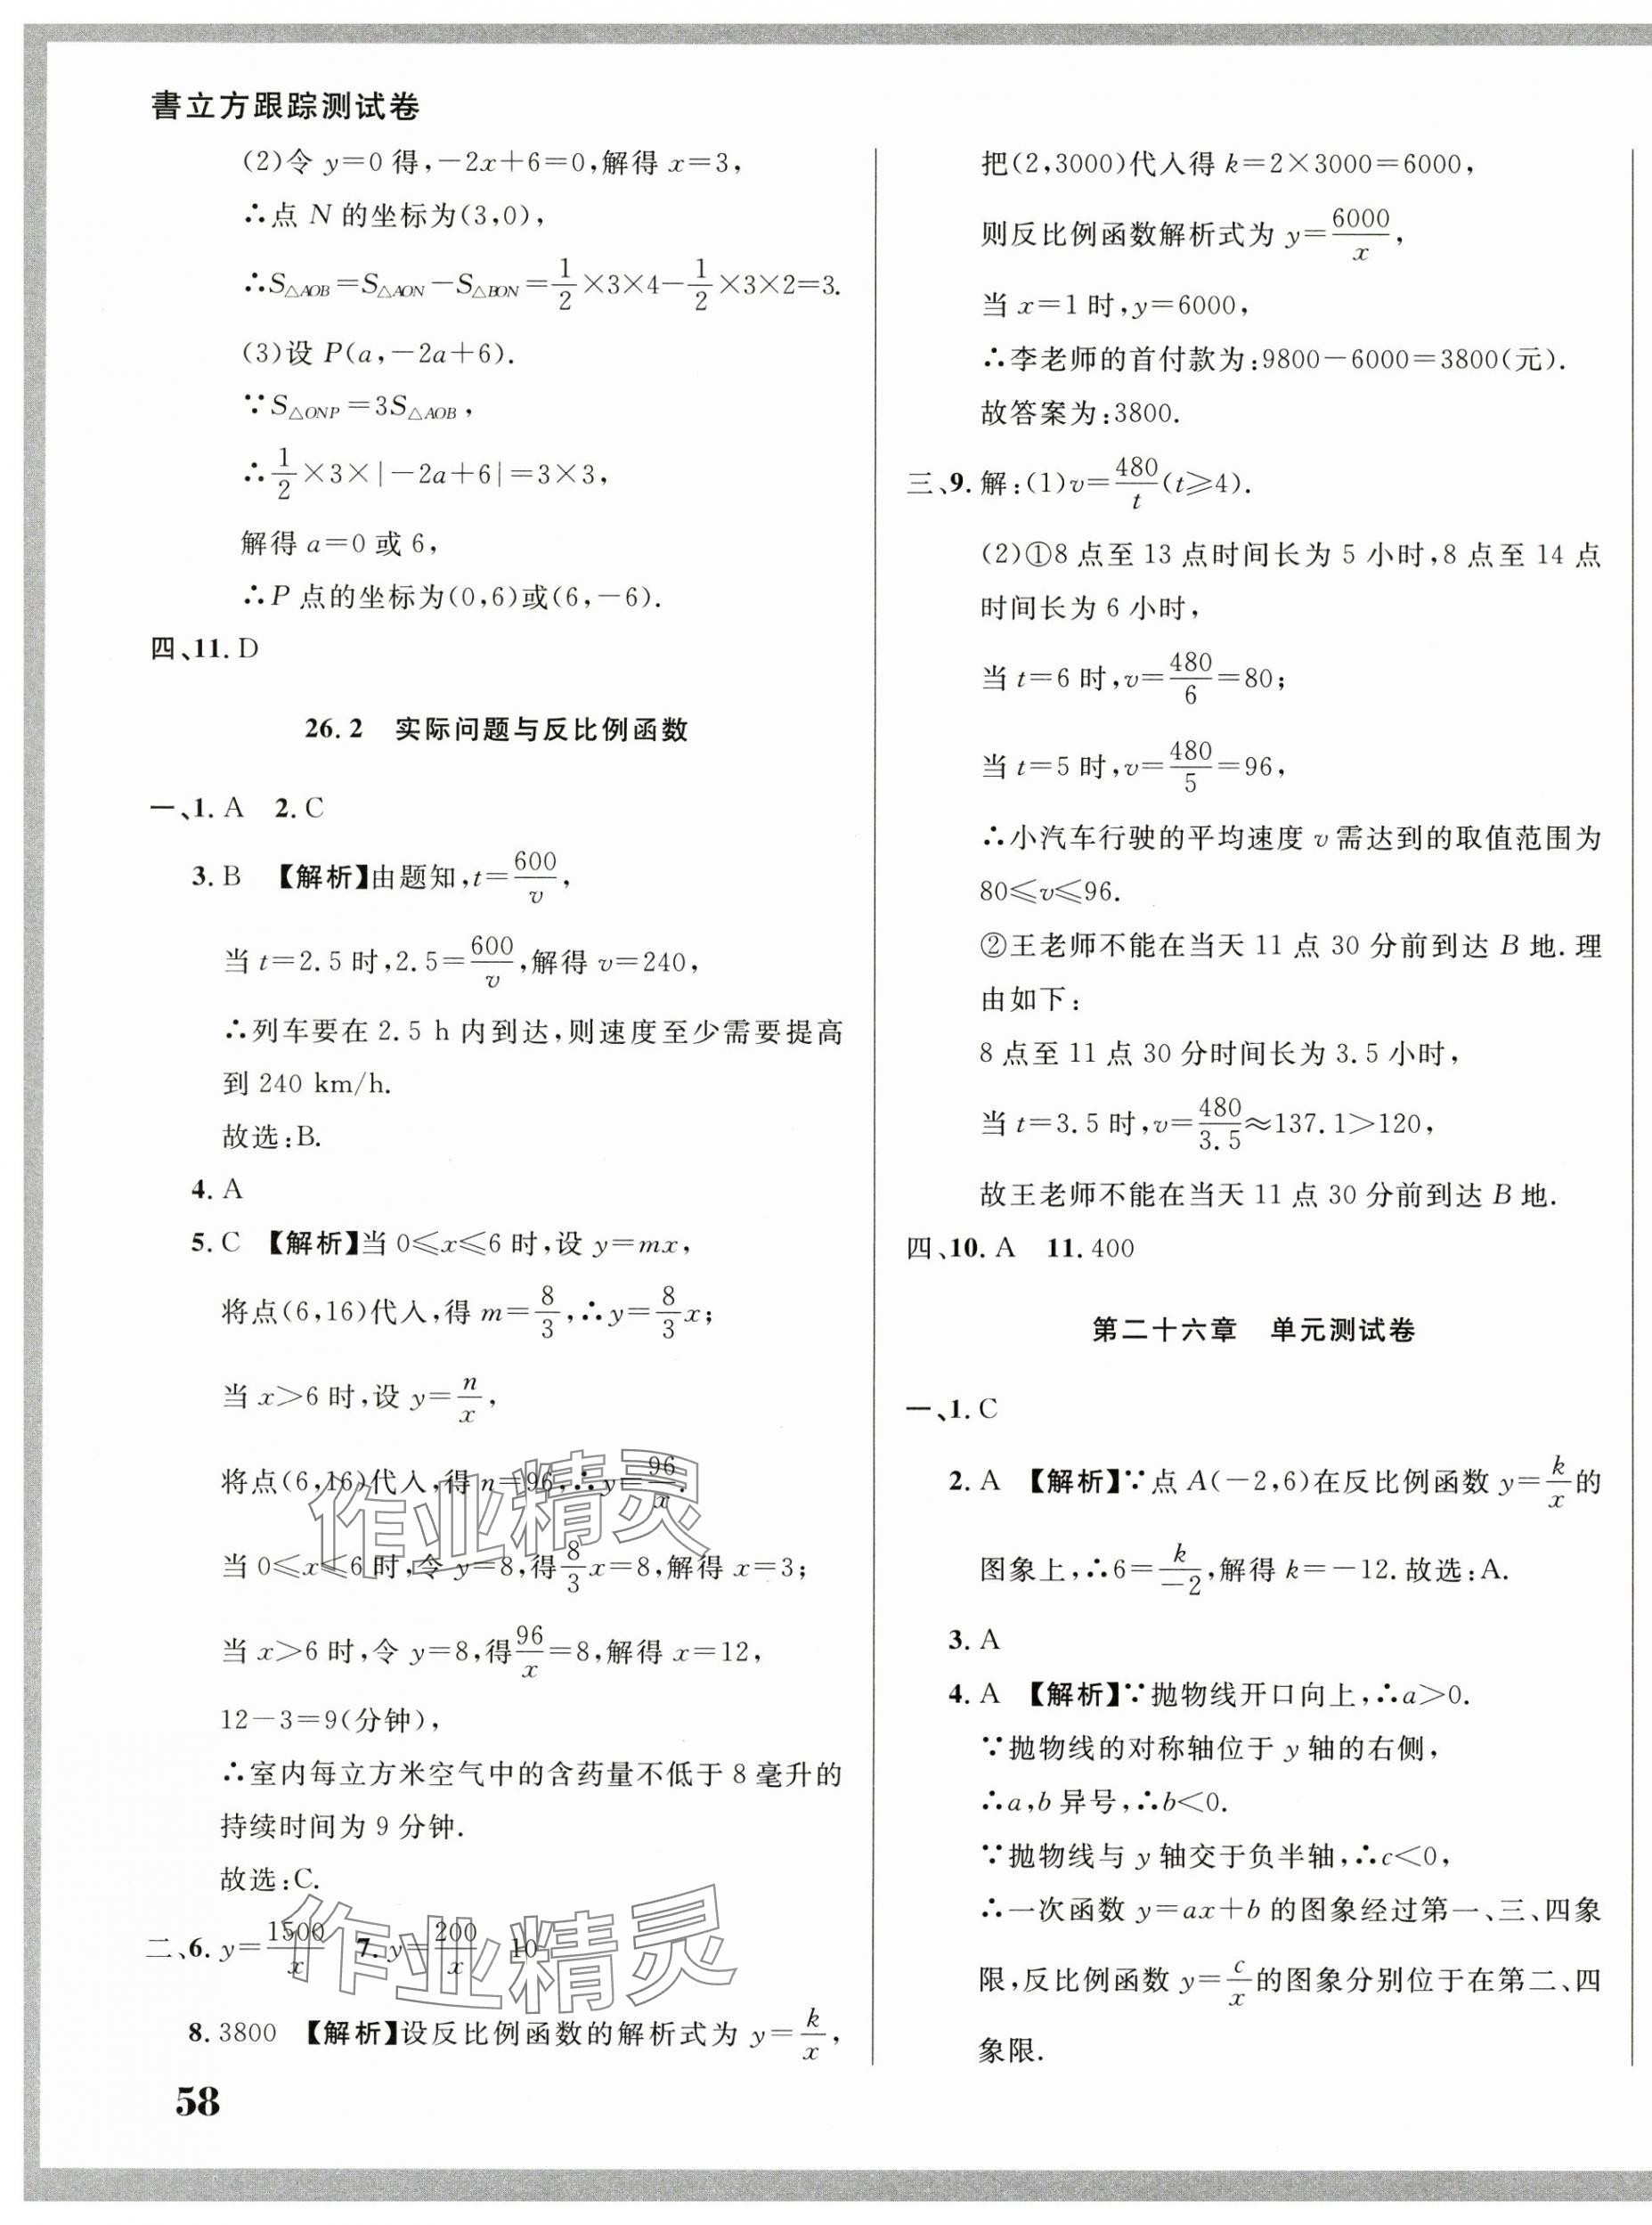 書立方跟踪测试卷
(2)令 y=0 得,-2x+6=0,解得 x=3,
∴点 N 的坐标为(3,0),
∴S△AOB=S△AON-S△BON=1/2×3×4-1/2×3×2=3.
(3)设 P(a,-2a+6).
∵S△ONP=3S△AOB,
∴1/2×3×|-2a+6|=3×3,
解得 a=0 或 6,
∴P 点的坐标为(0,6)或(6,-6).
四、11. D
26.2 实际问题与反比例函数
一、1. A 2. C
3. B 【解析】由题知,t=600/v,
当 t=2.5 时,2.5=600/v,解得 v=240,
∴列车要在 2.5 h 内到达,则速度至少需要提高
到 240 km/h.
故选:B.
4. A
5. C 【解析】当 0≤x≤6 时,设 y=mx,
将点(6,16)代入,得 m=8/3,∴y=8/3x;
当 x>6 时,设 y=n/x,
将点(6,16)代入,得 n=96,∴y=96/x.
当 0≤x≤6 时,令 y=8,得8/3x=8,解得 x=3;
当 x>6 时,令 y=8,得96/x=8,解得 x=12,
12-3=9(分钟),
∴室内每立方米空气中的含药量不低于 8 毫升的
持续时间为 9 分钟.
故选:C.
二、6. y=1500/x 7. y=200/x 10
8. 3800 【解析】设反比例函数的解析式为 y=k/x,
58
把(2,3000)代入得 k=2×3000=6000,
则反比例函数解析式为 y=6000/x,
当 x=1 时,y=6000,
∴李老师的首付款为:9800-6000=3800(元).
故答案为:3800.
三、9. 解:(1)v=480/t(t≥4).
(2)①8 点至 13 点时间长为 5 小时,8 点至 14 点
时间长为 6 小时,
当 t=6 时,v=480/6=80;
当 t=5 时,v=480/5=96,
∴小汽车行驶的平均速度 v 需达到的取值范围为
80≤v≤96.
②王老师不能在当天 11 点 30 分前到达 B 地.理
由如下:
8 点至 11 点 30 分时间长为 3.5 小时,
当 t=3.5 时,v=480/3.5≈137.1>120,
故王老师不能在当天 11 点 30 分前到达 B 地.
四、10. A 11. 400
第二十六章 单元测试卷
一、1. C
2. A 【解析】∵点 A(-2,6)在反比例函数 y=k/x的
图象上,∴6=k/-2,解得 k=-12.故选:A.
3. A
4. A 【解析】∵抛物线开口向上,∴a>0.
∵抛物线的对称轴位于 y 轴的右侧,
∴a,b 异号,∴b<0.
∵抛物线与 y 轴交于负半轴,∴c<0,
∴一次函数 y=ax+b 的图象经过第一、三、四象
限,反比例函数 y=c/x的图象分别位于在第二、四
象限.
作业精灵
作业精灵